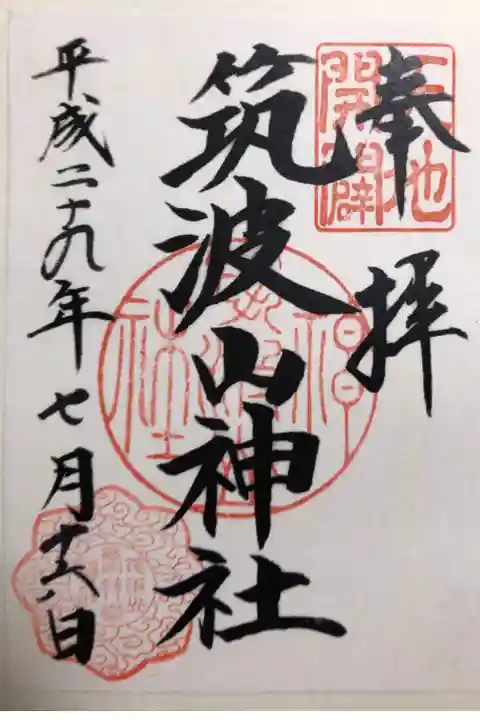 奉拝
天地開闢
筑波山神社
平成二十九年七月十六日